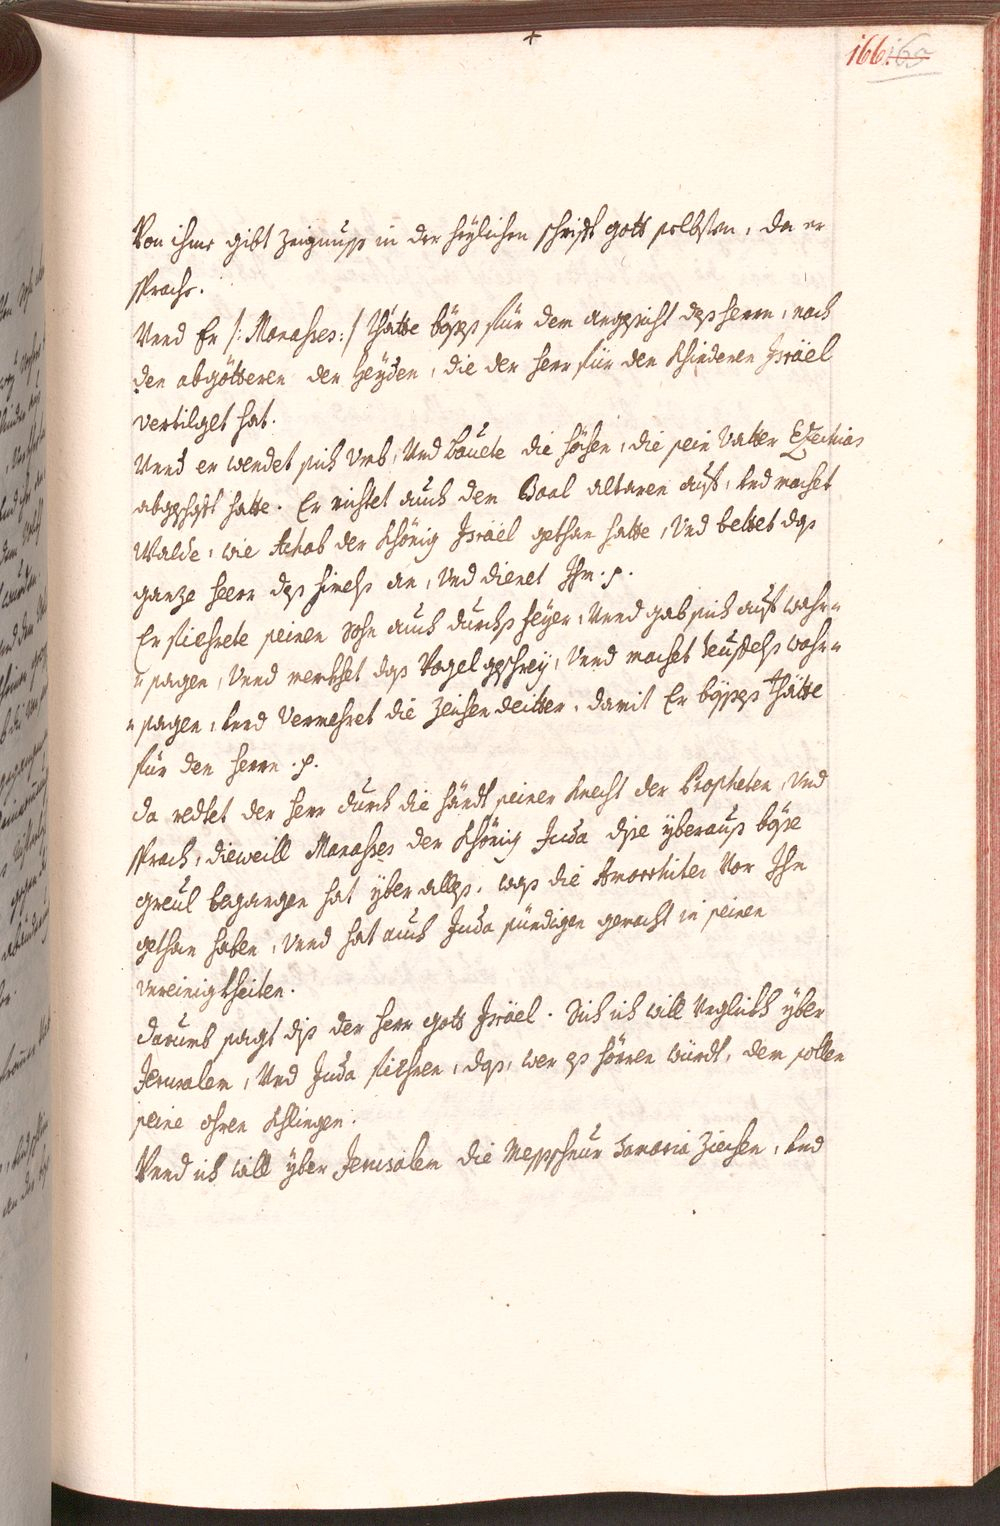 166. 165
Von ihme gibt Zeignuss in der heylichen schrifft gott selbsten, da er
sprache.
Vnnd Er /: Manasses:/ thätte bösses für dem angesicht dess herrn, nach
den abgötteren der heyden, die der herr für den Khinderen Israël
vertilget hat.
Vnnd er wendet sich vmb, Vnd bauete die höhen, die sein Vatter Ezechias
hatte. Er richtet auch dem Baal altaren auff, vnd machet
Wälde, wie Achab der Khönig Israël gethan hatte, Vnd bettet dass
ganze heer dess himels an, Vnd dienet Ihm. p.
Er fiehrete seinen sohn auch durchs feyer, Vnnd gab sich auff wahr=
=sagen, Vnnd merkhet dass Vogel geschrey, Vnnd machet teuffels wahr=
=sagen, vnnd Vermehret die Zeichen deitter, damit Er bösses thätte
für den herrn .p.
da redtet der herr durch die händt seiner Knecht der Propheten, Vnd
sprach, dieweill Manasses der Khönig Juda dise yberauss böse
greül begangen hat yber alless, wass die Amorrhiter Vor Ihm
gethan haben, Vnnd hat auch Juda sündigen gemacht in seinen
Vnreinigkheiten.
darumb sagt diss der herr gott Israël. Sich ich will Vnglickh yber
Jerusalem, Vnd Juda fiehren, dass, wer es hören würdt, dem sollen
seine ohren Khlingen.
Vnnd ich will yber Jerusalem die Messschnur Samaria Ziechen, vnd